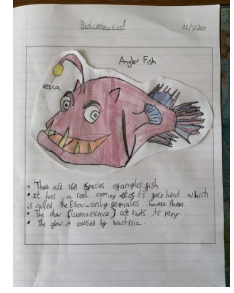 Angler Fish
esca
• There are 168 species of angler fish
• It has a rod coming out of its head which
is called the Esca - only females have them.
• The glow (luminescence) attracts its prey
• The glow is caused by bacteria.